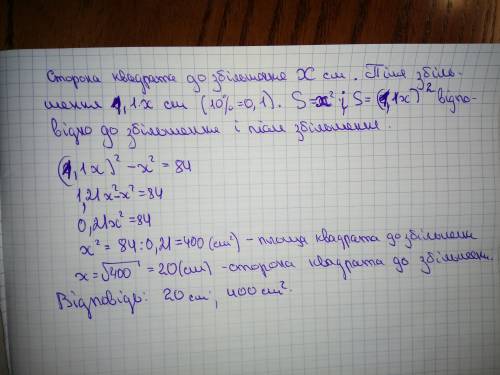 Сторона квадрата до збільшення x см. Після збіль-
шення 1,1x см (10%=0,1). S=x² і S=(1,1x)² відпо-
відно до збільшення і після збільшення.
(1,1x)²-x²=84
1,21x²-x²=84
0,21x²=84
x²=84:0,21=400(см²)-площа квадрата до збільшенн
x=√400=20(см)-сторона квадрата до збільшенн.
Відповідь: 20см; 400см².